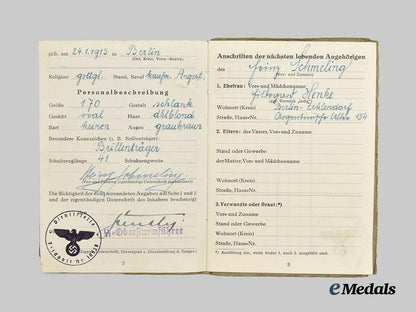 geb. am 24.1.1913 in Berlin
(Ort, Kreis, Verw.-Bezirk)
Religion gottgl. Stand, Beruf kaufm. Angest.
Personalbeschreibung
Größe 170 Gestalt schlank
Gesicht oval Haar dklblond
Bart keinen Augen graubraun
Besondere Kennzeichen (z. B. Brillenträger):
Brillenträger
Schuhzeuglänge 41 Schuhzeugweite
Heinz Schmeling
(Vor- und Zuname, eigenhändige Unterschrift des Inhabers)
Die Richtigkeit der nicht umrandeten Angaben auf Seite 1 und 2
und der eigenhändigen Unterschrift des Inhabers bescheinigt
Dienststelle
Feldpost Nr.
SS-Obersturmführer
2
Anschriften der nächsten lebenden Angehörigen
des Heinz Schmeling
(Vor- und Zuname)
1. Ehefrau: Vor- und Mädchenname
Hildegard Henke
Wohnort (Kreis) Berlin-Zehlendorf
Straße, Haus-Nr.
2. Eltern: des Vaters, Vor- und Zuname
Stand oder Gewerbe
der Mutter, Vor- und Mädchenname
Wohnort (Kreis)
Straße, Haus-Nr.
3. Verwandte oder Braut:*)
Vor- und Zuname
Stand oder Gewerbe
Wohnort (Kreis)
Straße, Haus-Nr.
*) Ausfüllung nur, wenn weder 1. noch 2. ausgefüllt sind.
3
eMedals